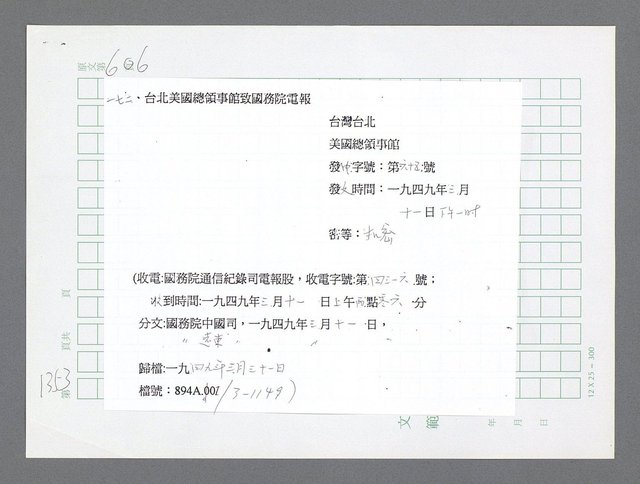 原文第 606
一七二、台北美國總領事館致國務院電報
台灣台北
美國總領事館
發文字號：第六十五號
發文時間：一九四九年三月
十一日下午一時
密等：機密
(收電:國務院通信紀錄司電報股，收電字號:第四三一六號；
收到時間:一九四九年三月十一 日上午兩點零六 分
分文:國務院中國司，一九四九年三月十一日，
〃 遠東 〃 〃
歸檔:一九四九年三月三十一日
檔號：894A.00/ /3-1149)
第 1353 頁共 頁
文 範
年 月 日
12 X 25 = 300